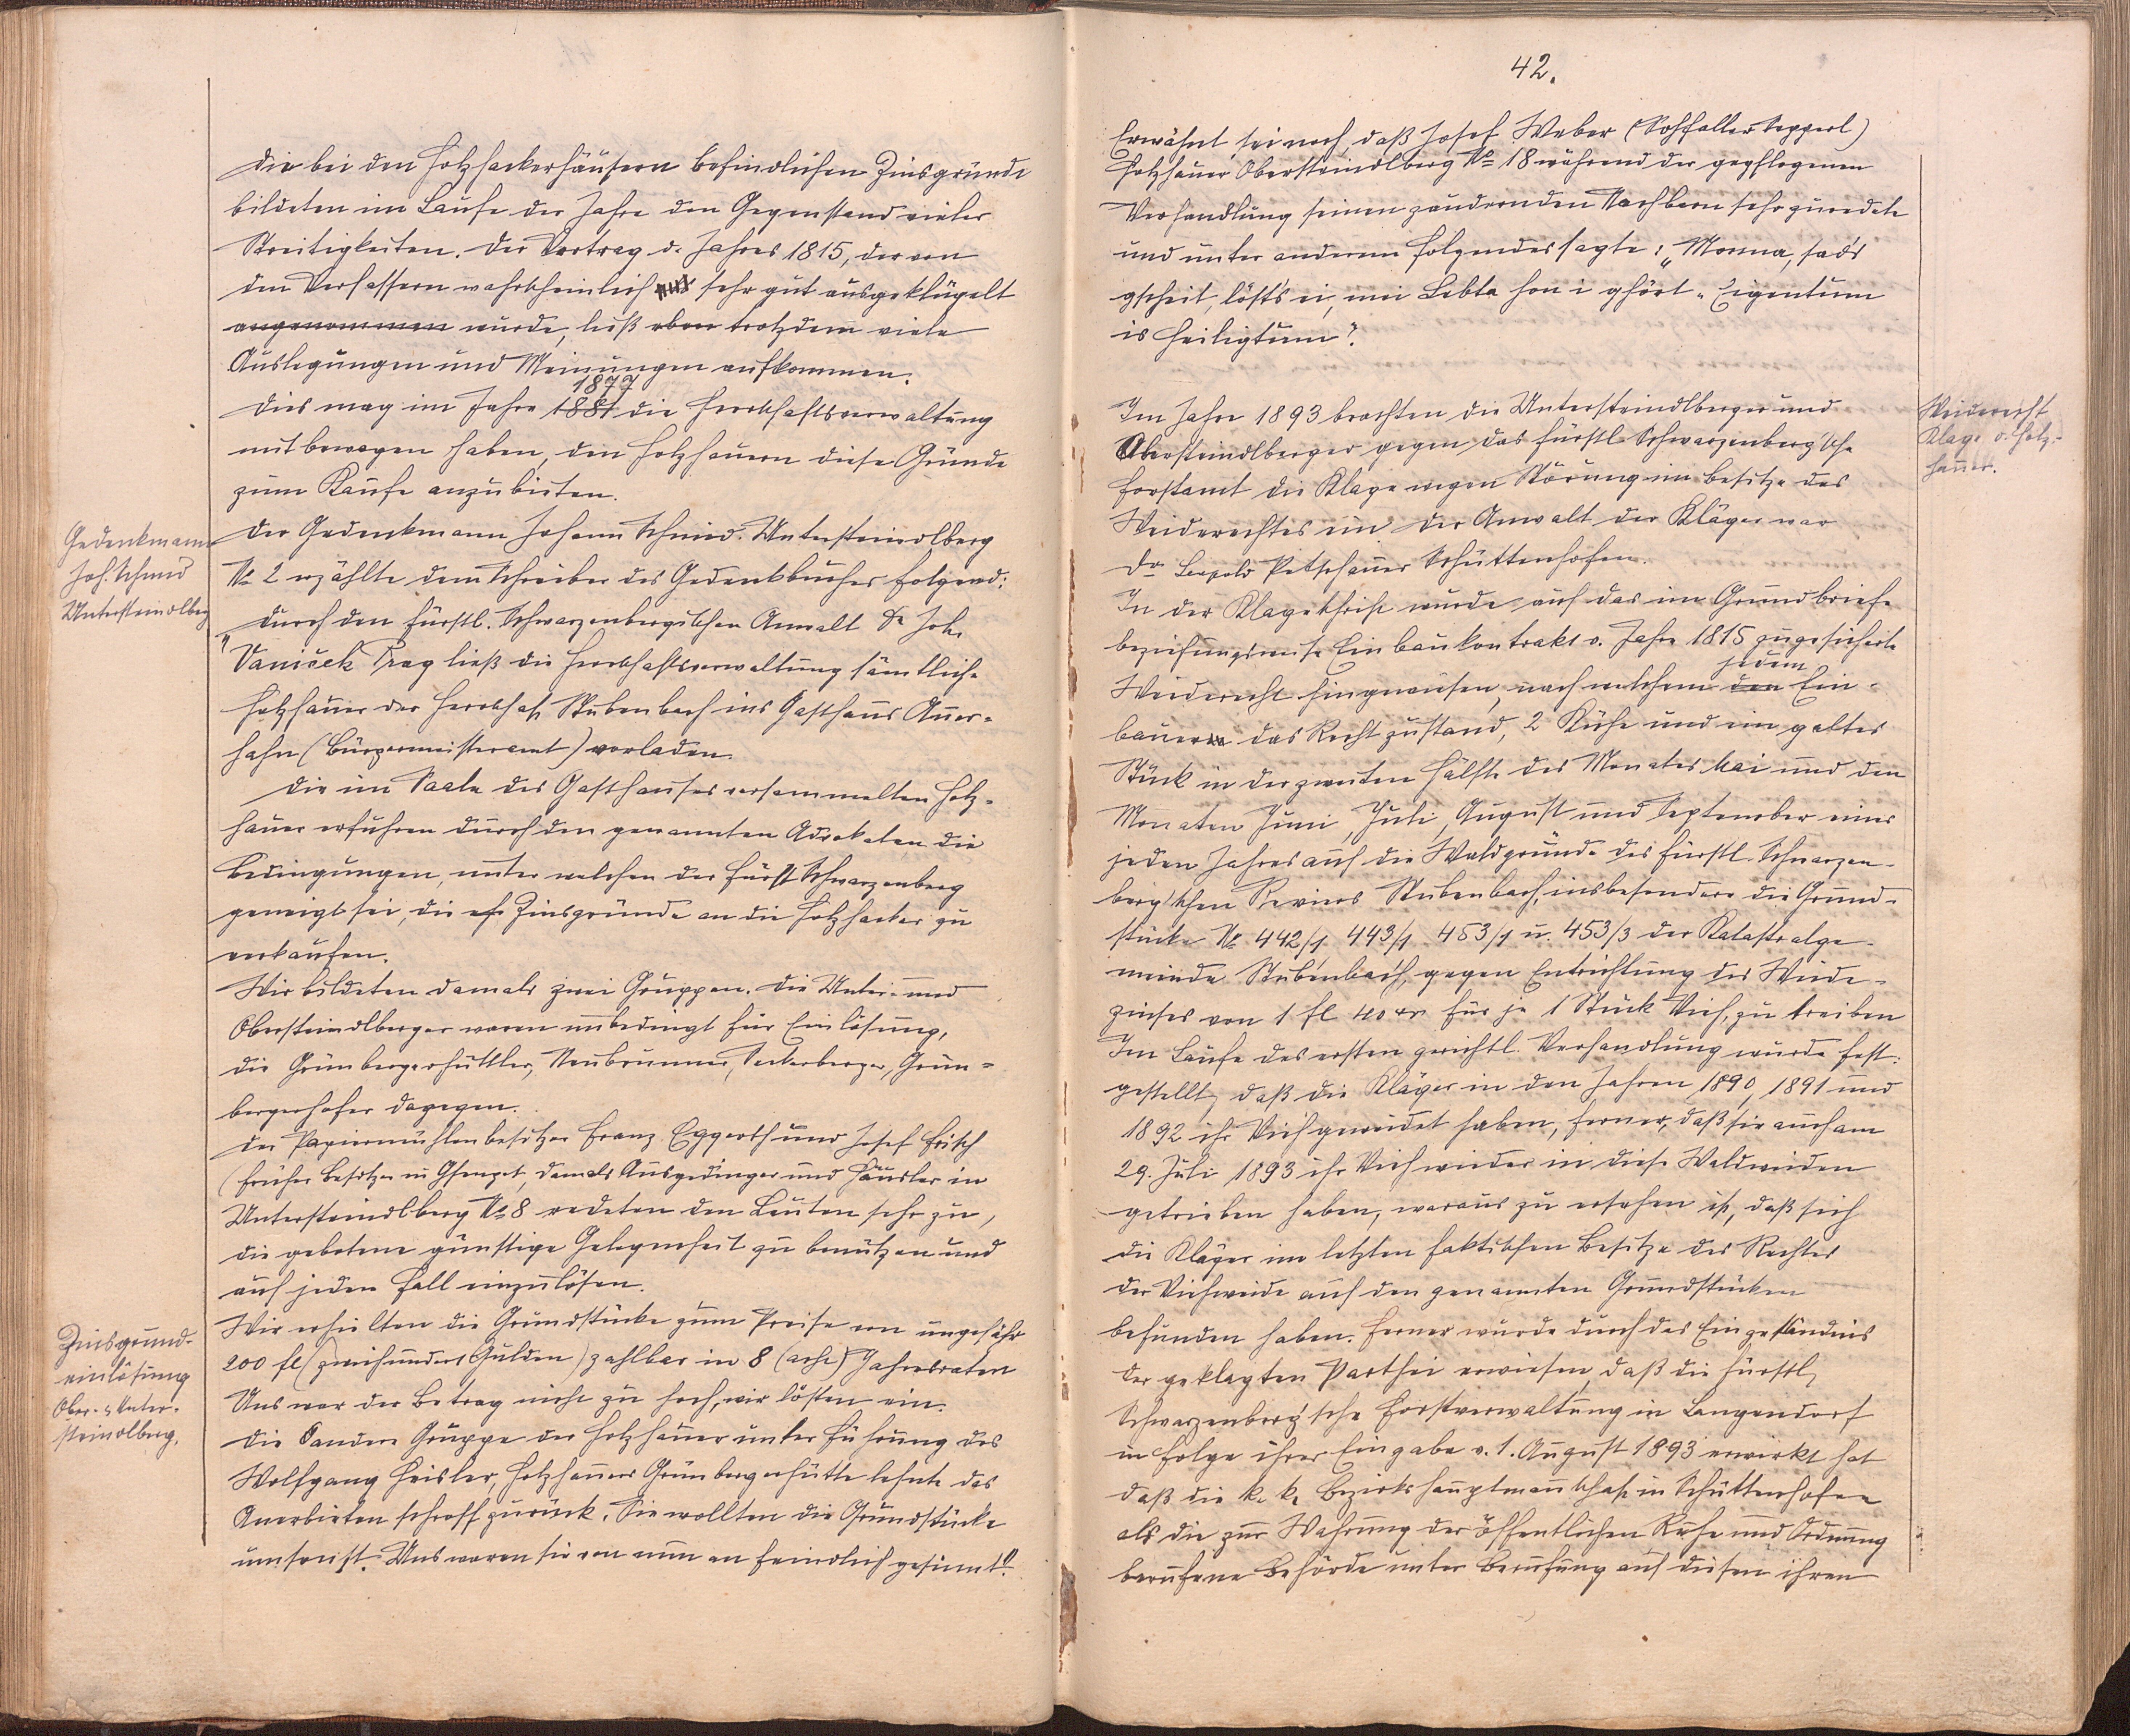 Die bei den Holzhackerhäusern befindlichen Zinsgründe
bildeten im Laufe der Jahre den Gegenstand vieler
Streitigkeiten. Der Vertrag d. Jahres 1815, der von
den Verfassern wahrscheinlich sehr gut ausgeklügelt
angenommen wurde, ließ eben trotzdem viele
Auslegungen und Meinungen aufkommen.
1877
Dies mag im Jahre 1881 die Herrschaftsverwaltung
mit bewogen haben, den Holzhauern diese Gründe
zum Kaufe anzubieten.
Gedenkmann
Joh. Schmid
Untersteindlberg
Der Gedenkmann Johann Schmid. Untersteindlberg
No 2 erzählte dem Schreiber des Gedenkbuches folgend:
„Durch den fürstl. Schwarzenbergischen Anwalt Dr Joh.
Vaniček Prag ließ die Herrschaftsverwaltung sämtliche
Holzhauer der Herrschaft Stubenbach ins Gasthaus Auer-
hahn (Bürgermeisteramt) vorladen.
Die im Saale des Gasthauses versammelten Holz-
hauer erfuhren durch den genannten Advokaten die
Bedingungen, unter welchen der Fürst Schwarzenberg
geneigt sei, die Zinsgründe an die Holzhacker zu
verkaufen.
Wir bildeten damals zwei Gruppen. Die Unter- und
Obersteindlberger waren unbedingt für Einlösung,
die Grünbergerhüttler, Neubrunner, Seckerberger, Grün-
bergerhofer dagegen.
Der Papiermühlenbesitzer Franz Eggerth und Josef Frisch
(früher Besitzer in Gsenget, damals Ausgedinger und Häusler in
Untersteindlberg No 8 redeten den Leuten sehr zu,
die gebotene günstige Gelegenheit zu benützen und
auf jeden Fall einzulösen.
Zinsgrund-
einlösung
Ober- u Unter-
steindlberg.
Wir erhielten die Grundstücke zum Preise von ungefähr
200 fl (zweihundert Gulden) zahlbar in 8 (acht) Jahresraten
Uns war der Betrag nicht zu hoch, wir lösten ein.
Die andere Gruppe der Holzhauer unter Führung des
Wolfgang Heisler, Holzhauers Grünbergerhütte lehnte das
Anerbieten schroff zurück. Sie wollten die Grundstücke
umsonst. Uns waren sie von nun an feindlich gesinnt!"
42.
Erwähnt sei noch, daß Josef Weber (Sepperl)
Holzhauer Obersteindlberg No 18 während der gepflogenen
Verhandlung seinen zaudernden Nachbarn sehr zuredete
und unter anderem folgendes sagte: „Monna, sads
gscheit, löst's ei, mei Lebta hon i ghört „Eigentum
is Heiligtum".
Weiderecht
Klage d. Holz-
hauer.
Im Jahre 1893 brachten die Untersteindlberger und
Obersteindlberger gegen das fürstl. Schwarzenberg'sche
Forstamt die Klage wegen Störung im Besitze des
Weiderechtes ein. Der Anwalt der Kläger war
Dr Leopold Petschauer Schüttenhofen.
In der Klageschrift wurde auf das im Grundbriefe
beziehungsweise Einbaukontrakt v. Jahre 1815 zugesicherte
jedem
Weiderecht hingewiesen, nach welchem den Ein-
bauern das Recht zustand, 2 Kühe und ein galtes
Stück in der zweiten Hälfte des Monates Mai und den
Monaten Juni, Juli, August und September eines
jeden Jahres auf die Waldgründe des fürstl. Schwarzen-
berg'schen Reviers Stubenbach, insbesondere die Grund-
stücke No 442/1 443/1 453/1 u. 453/3 der Katastralge-
meinde Stubenbach, gegen Entrichtung des Weide-
zinses von 1 fl 40 kr für je 1 Stück Vieh, zu treiben
Im Laufe des ersten gerichtl. Verhandlung wurde fest-
gestellt, daß die Kläger in den Jahren 1890, 1891 und
1892 ihr Vieh geweidet haben, ferner, daß sie auch am
29. Juli 1893 ihr Vieh wieder in diese Waldweiden
getrieben haben, woraus zu ersehen ist, daß sich
die Kläger im letzten faktischen Besitze des Rechtes
der Viehweide auf den genannten Grundstücken
befunden haben. Ferner wurde durch das Eingeständnis
der geklagten Parthei erwiesen, daß die fürstl.
Schwarzenberg'sche Forstverwaltung in Langendorf
in Folge ihrer Eingabe v. 1. August 1893 erwirkt hat
daß die k. k. Bezirkshauptmannschaft in Schüttenhofen
als die zur Wahrung der öffentlichen Ruhe und Ordnung
berufene Behörde unter Berufung auf diesen ihren